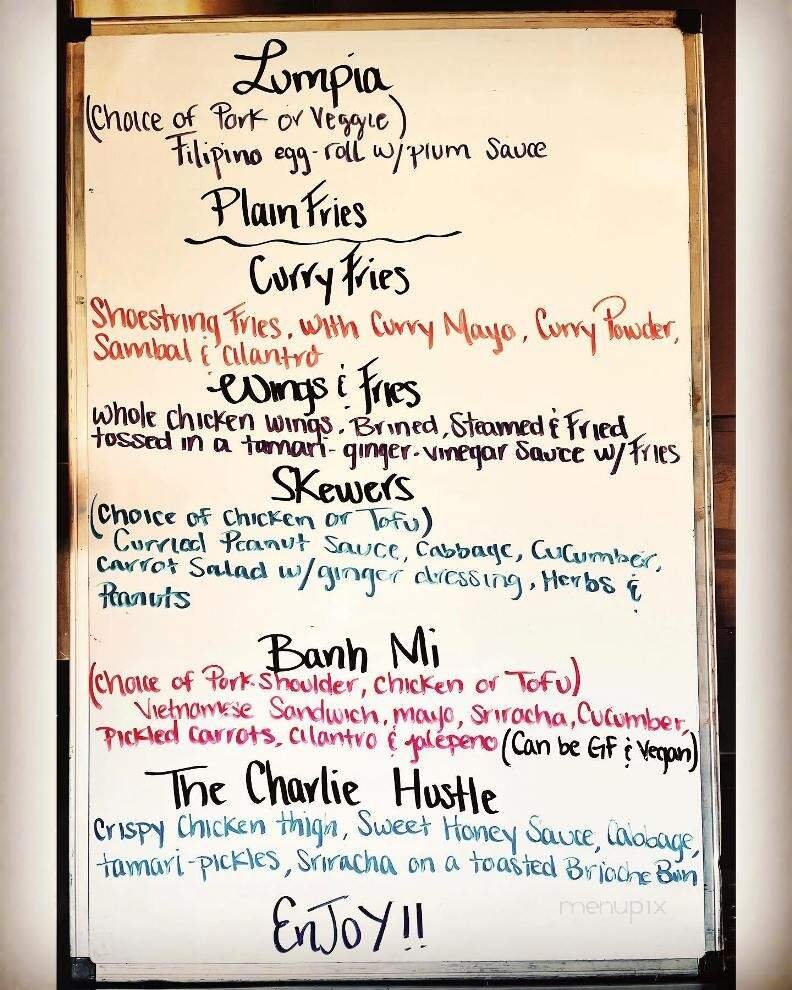 Lumpia
(Choice of Pork or Veggie)
Filipino egg-roll w/plum Sauce
Plain Fries
Curry Fries
Shoestring Fries, with Curry Mayo, Curry Powder,
Sambal & Cilantro
Wings & Fries
Whole chicken wings. Brined, Steamed & Fried
tossed in a tamari-ginger-vinegar Sauce w/ Fries
Skewers
(Choice of Chicken or Tofu)
Curried Peanut Sauce, Cabbage, Cucumber,
Carrot Salad w/ginger dressing, Herbs &
Peanuts
Banh Mi
(Choice of Pork Shoulder, Chicken or Tofu)
Vietnamese Sandwich, mayo, Sriracha, Cucumber,
Pickled Carrots, Cilantro & jalepeno (Can be GF & Vegan)
The Charlie Hustle
Crispy Chicken thigh, Sweet Honey Sauce, Cabbage,
tamari-pickles, Sriracha on a toasted Brioche Bun
EnJoY!!
menupix